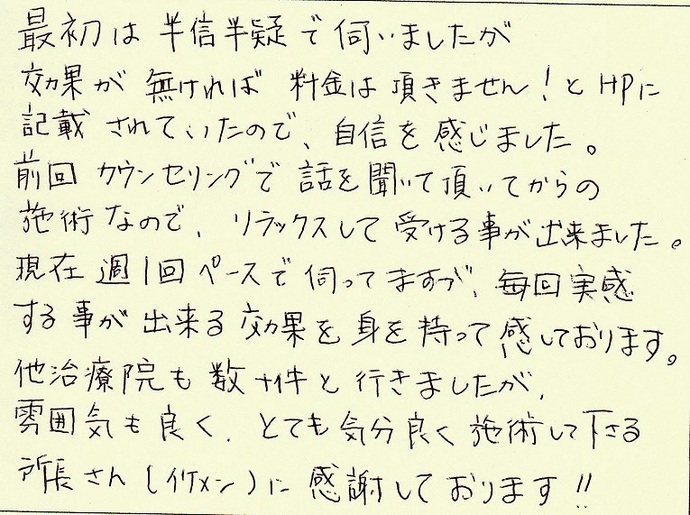 最初は半信半疑で伺いましたが
効果が無ければ 料金は頂きません!とHPに
記載されていたので、自信を感じました。
前回カウンセリングで話を聞いて頂いてからの
施術なので、リラックスして受ける事が出来ました。
現在週1回ペースで伺ってますが、毎回実感
する事が出来る効果を身を持って感じております。
他治療院も数十件と行きましたが、
雰囲気も良く、とても気分良く施術して下さる
所長さん(イケメン)に感謝しております!!